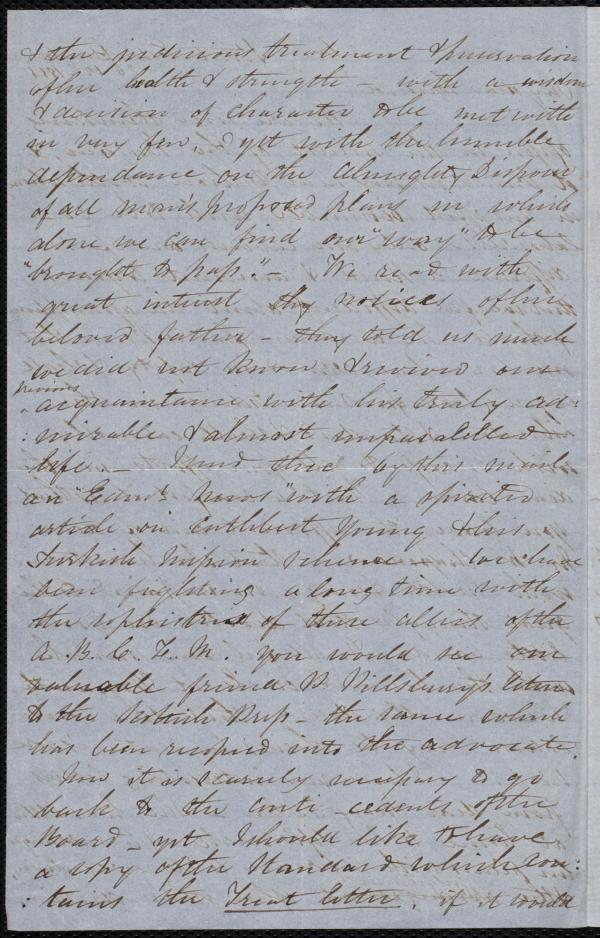 & the judicious treatment & preservation
of her health & strength – with a wisdom
& decision of character to be met with
in very few, & yet with the humble
dependance on the Almighty Disposer
of all man's proposed plans in which
alone we can find our "way" to be
"brought to pass." – We read with
great interest thy notices of her
beloved father – they told us much
we did not know & revived our
previous
acquaintance with his truly ad:
:mirable & almost unparalelled
life. – I send thee by this mail
an "Edinr. News" with a spirited
article on Cuthbert Young & his
Turkish Mission scheme – we have
been fighting a long time with
the sophistries of these allies of the
A. B. C. F. M. you would see our
valuable friend P. Pillsbury's letter
to the Scottish Press – the same which
has been recopied into the Advocate.
Now it is scarcely necessary to go
back to the anti cedents of the
Board – yet I should like to have
a copy of the Standard which con:
:tains the Treat letter, if it would